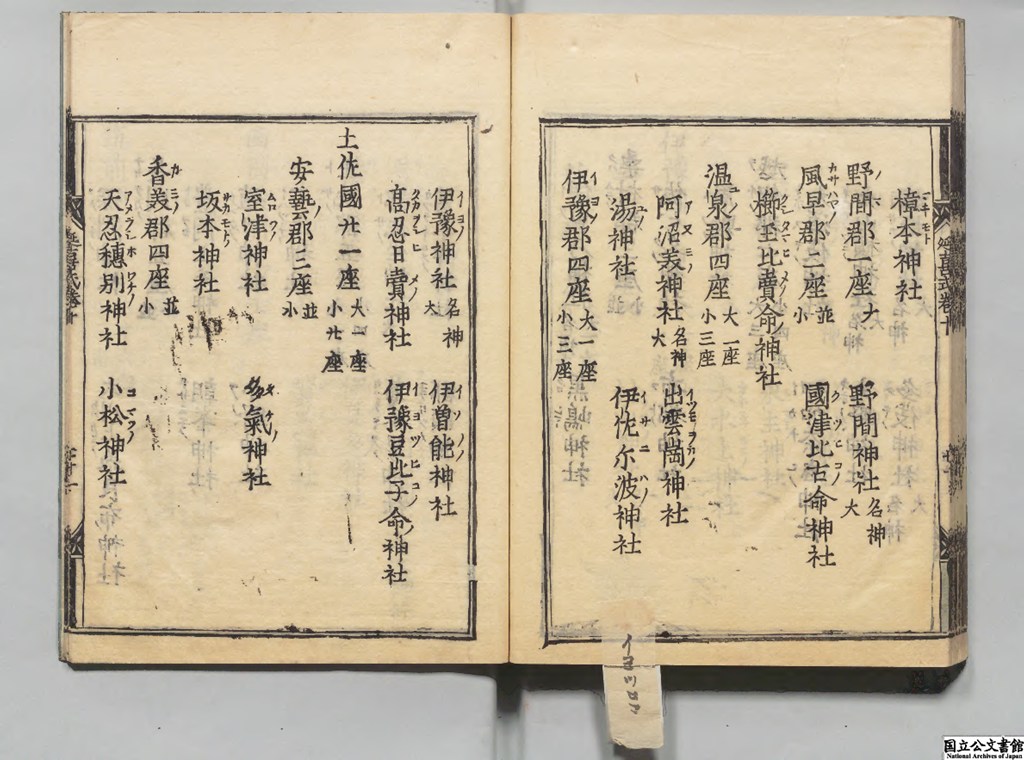 樟本神社
野間郡一座大 野間神社名神大
風早郡二座並小 國津比古命神社
櫛玉比賣命神社
温泉郡四座大一座小三座
阿沼美神社名神大 出雲崗神社
湯神社 伊佐尓波神社
伊豫郡四座大一座小三座
伊豫神社名神大 伊曽能神社
高忍日賣神社 伊豫豆比子命神社
土佐國廿一座大一座小廿座
安藝郡三座並小
室津神社 多氣神社
坂本神社
香美郡四座並小
天忍穗別神社 小松神社
延喜式卷十
イヨツロマ
国立公文書館
National Archives of Japan